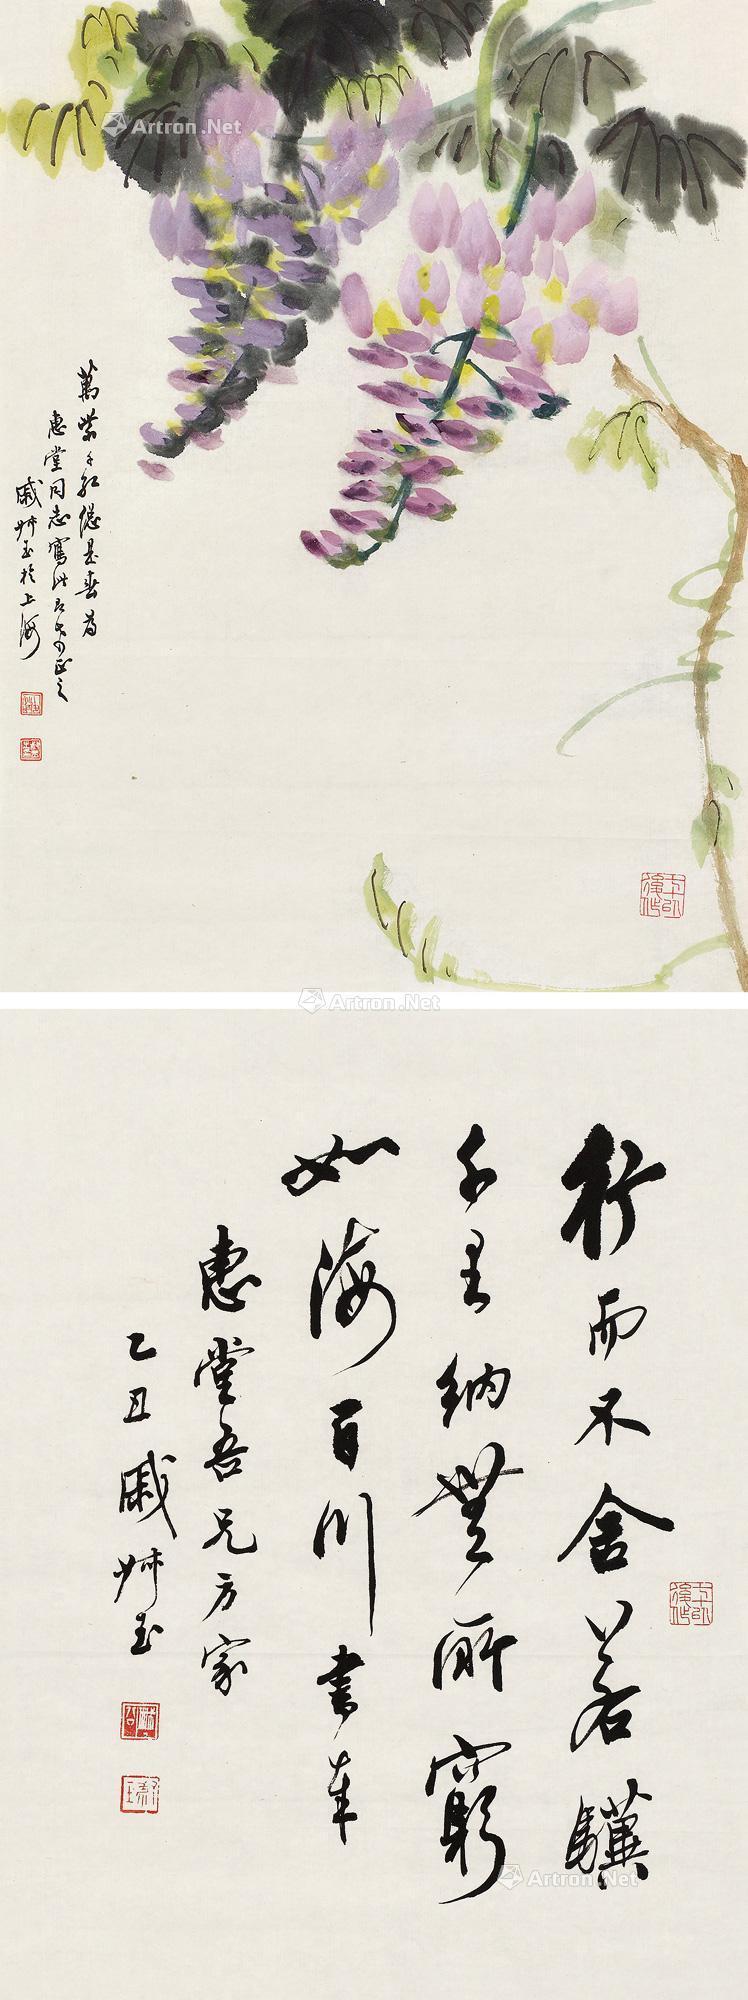 Artron.Net
萬紫千紅總是春 為
惠堂同志寫此即希正之
戚叔玉於上海
Artron.Net
行而不舍若驥
千里納無所窮
如海百川 書奉
惠堂吾兄方家
乙丑戚叔玉
Artron.Net